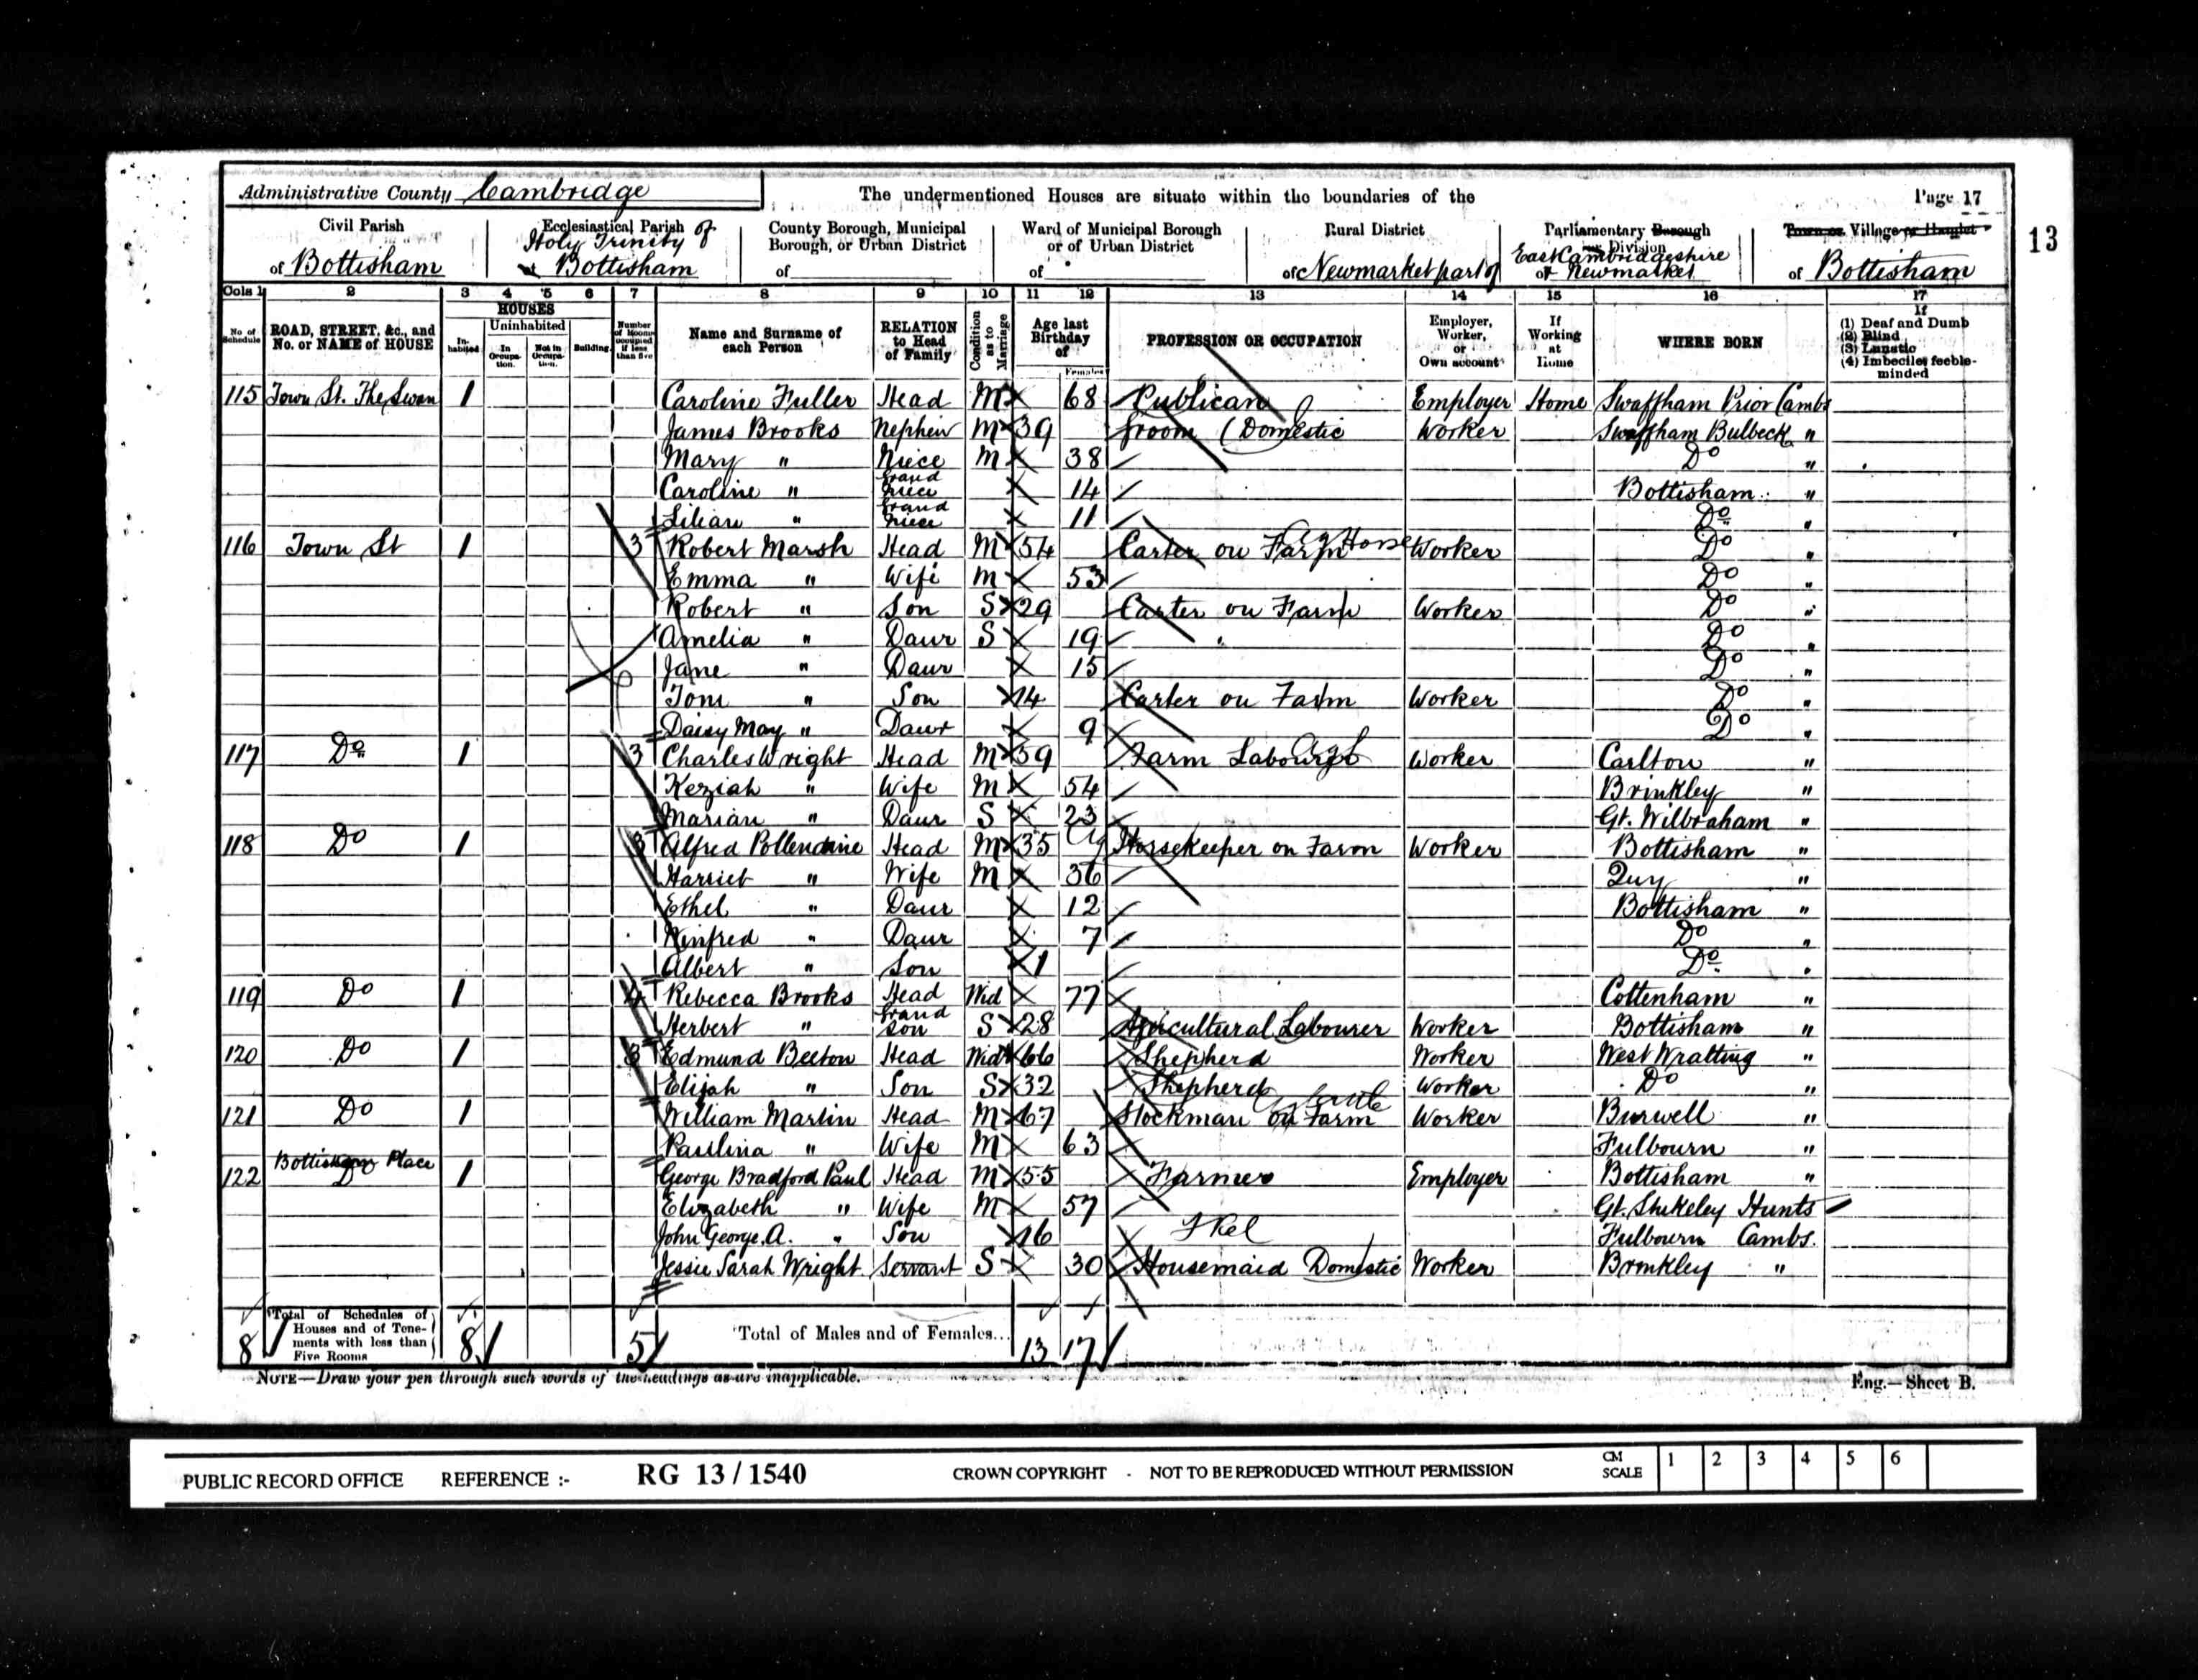 Administrative County Cambridge The undermentioned Houses are situate within the boundaries of the Page 17
13
Civil Parish of Bottisham
Ecclesiastical Parish of Holy Trinity Bottisham
County Borough, Municipal Borough, or Urban District of
Ward of Municipal Borough or of Urban District of
Rural District of Newmarket part of
Parliamentary Borough or Division of East Cambridgeshire Newmarket
Town or Village or Hamlet of Bottisham
Cols 1 2 3 4 5 6 7 8 9 10 11 12 13 14 15 16 17
No. of Schedule
ROAD, STREET, &c., and No. or NAME of HOUSE
HOUSES
Inhabited
Uninhabited
In Occupation.
Not in Occupation.
Building.
Number of Rooms occupied if less than five
Name and Surname of each Person
RELATION to Head of Family
Condition as to Marriage
Age last Birthday of
Females
PROFESSION OR OCCUPATION
Employer, Worker, or Own account
If Working at Home
WHERE BORN
If (1) Deaf and Dumb (2) Blind (3) Lunatic (4) Imbecile, feeble-minded
115 Town St. The Swan 1 Caroline Fuller Head M 68 Publican Employer Home Swaffham Prior Cambs
James Brooks Nephew M 39 Groom (Domestic Worker Swaffham Bulbeck "
Mary " Niece M 38 Do "
Caroline " Grand niece 14 Bottisham "
Lilian " Grand niece 11 Do "
116 Town St 1 3 Robert Marsh Head M 54 Carter on Farm Horse Worker Do "
Emma " Wife M 53 Do "
Robert " Son S 29 Carter on Farm Worker Do "
Amelia " Daur S 19 Do "
Jane " Daur 15 Do "
Tom " Son 14 Carter on Farm Worker Do "
Daisy May " Daur 9 Do "
117 Do 1 3 Charles Wright Head M 59 Farm Labourer Worker Carlton "
Keziah " Wife M 54 Brinkley "
Marian " Daur S 23 Gt. Wilbraham "
118 Do 1 3 Alfred Pollendine Head M 35 Horsekeeper on Farm Worker Bottisham "
Harriet " Wife M 36 Quy "
Ethel " Daur 12 Bottisham "
Winfred " Daur 7 Do "
Albert " Son 1 Do "
119 Do 1 4 Rebecca Brooks Head Wid 77 Cottenham "
Herbert " Grand son S 28 Agricultural Labourer Worker Bottisham "
120 Do 1 3 Edmund Beeton Head Wid 66 Shepherd Worker West Wratting "
Elijah " Son S 32 Shepherd Worker Do "
121 Do 1 William Martin Head M 67 Stockman on Farm Cattle Worker Burwell "
Paulina " Wife M 63 Fulbourn "
122 Bottisham Place Do 1 George Bradford Paul Head M 55 Farmer Employer Bottisham "
Elizabeth " Wife M 57 Gt. Stukeley Hunts
John George. A. " Son 16 Fulbourn Cambs.
Jessie Sarah Wright Servant S 30 Housemaid Domestic Worker Brinkley "
8 Total of Schedules of Houses and of Tenements with less than Five Rooms 8 5 Total of Males and of Females... 13 17
NOTE—Draw your pen through such words of the headings as are inapplicable.
Eng.—Sheet B.
PUBLIC RECORD OFFICE REFERENCE :- RG 13 / 1540 CROWN COPYRIGHT - NOT TO BE REPRODUCED WITHOUT PERMISSION CM SCALE 1 2 3 4 5 6